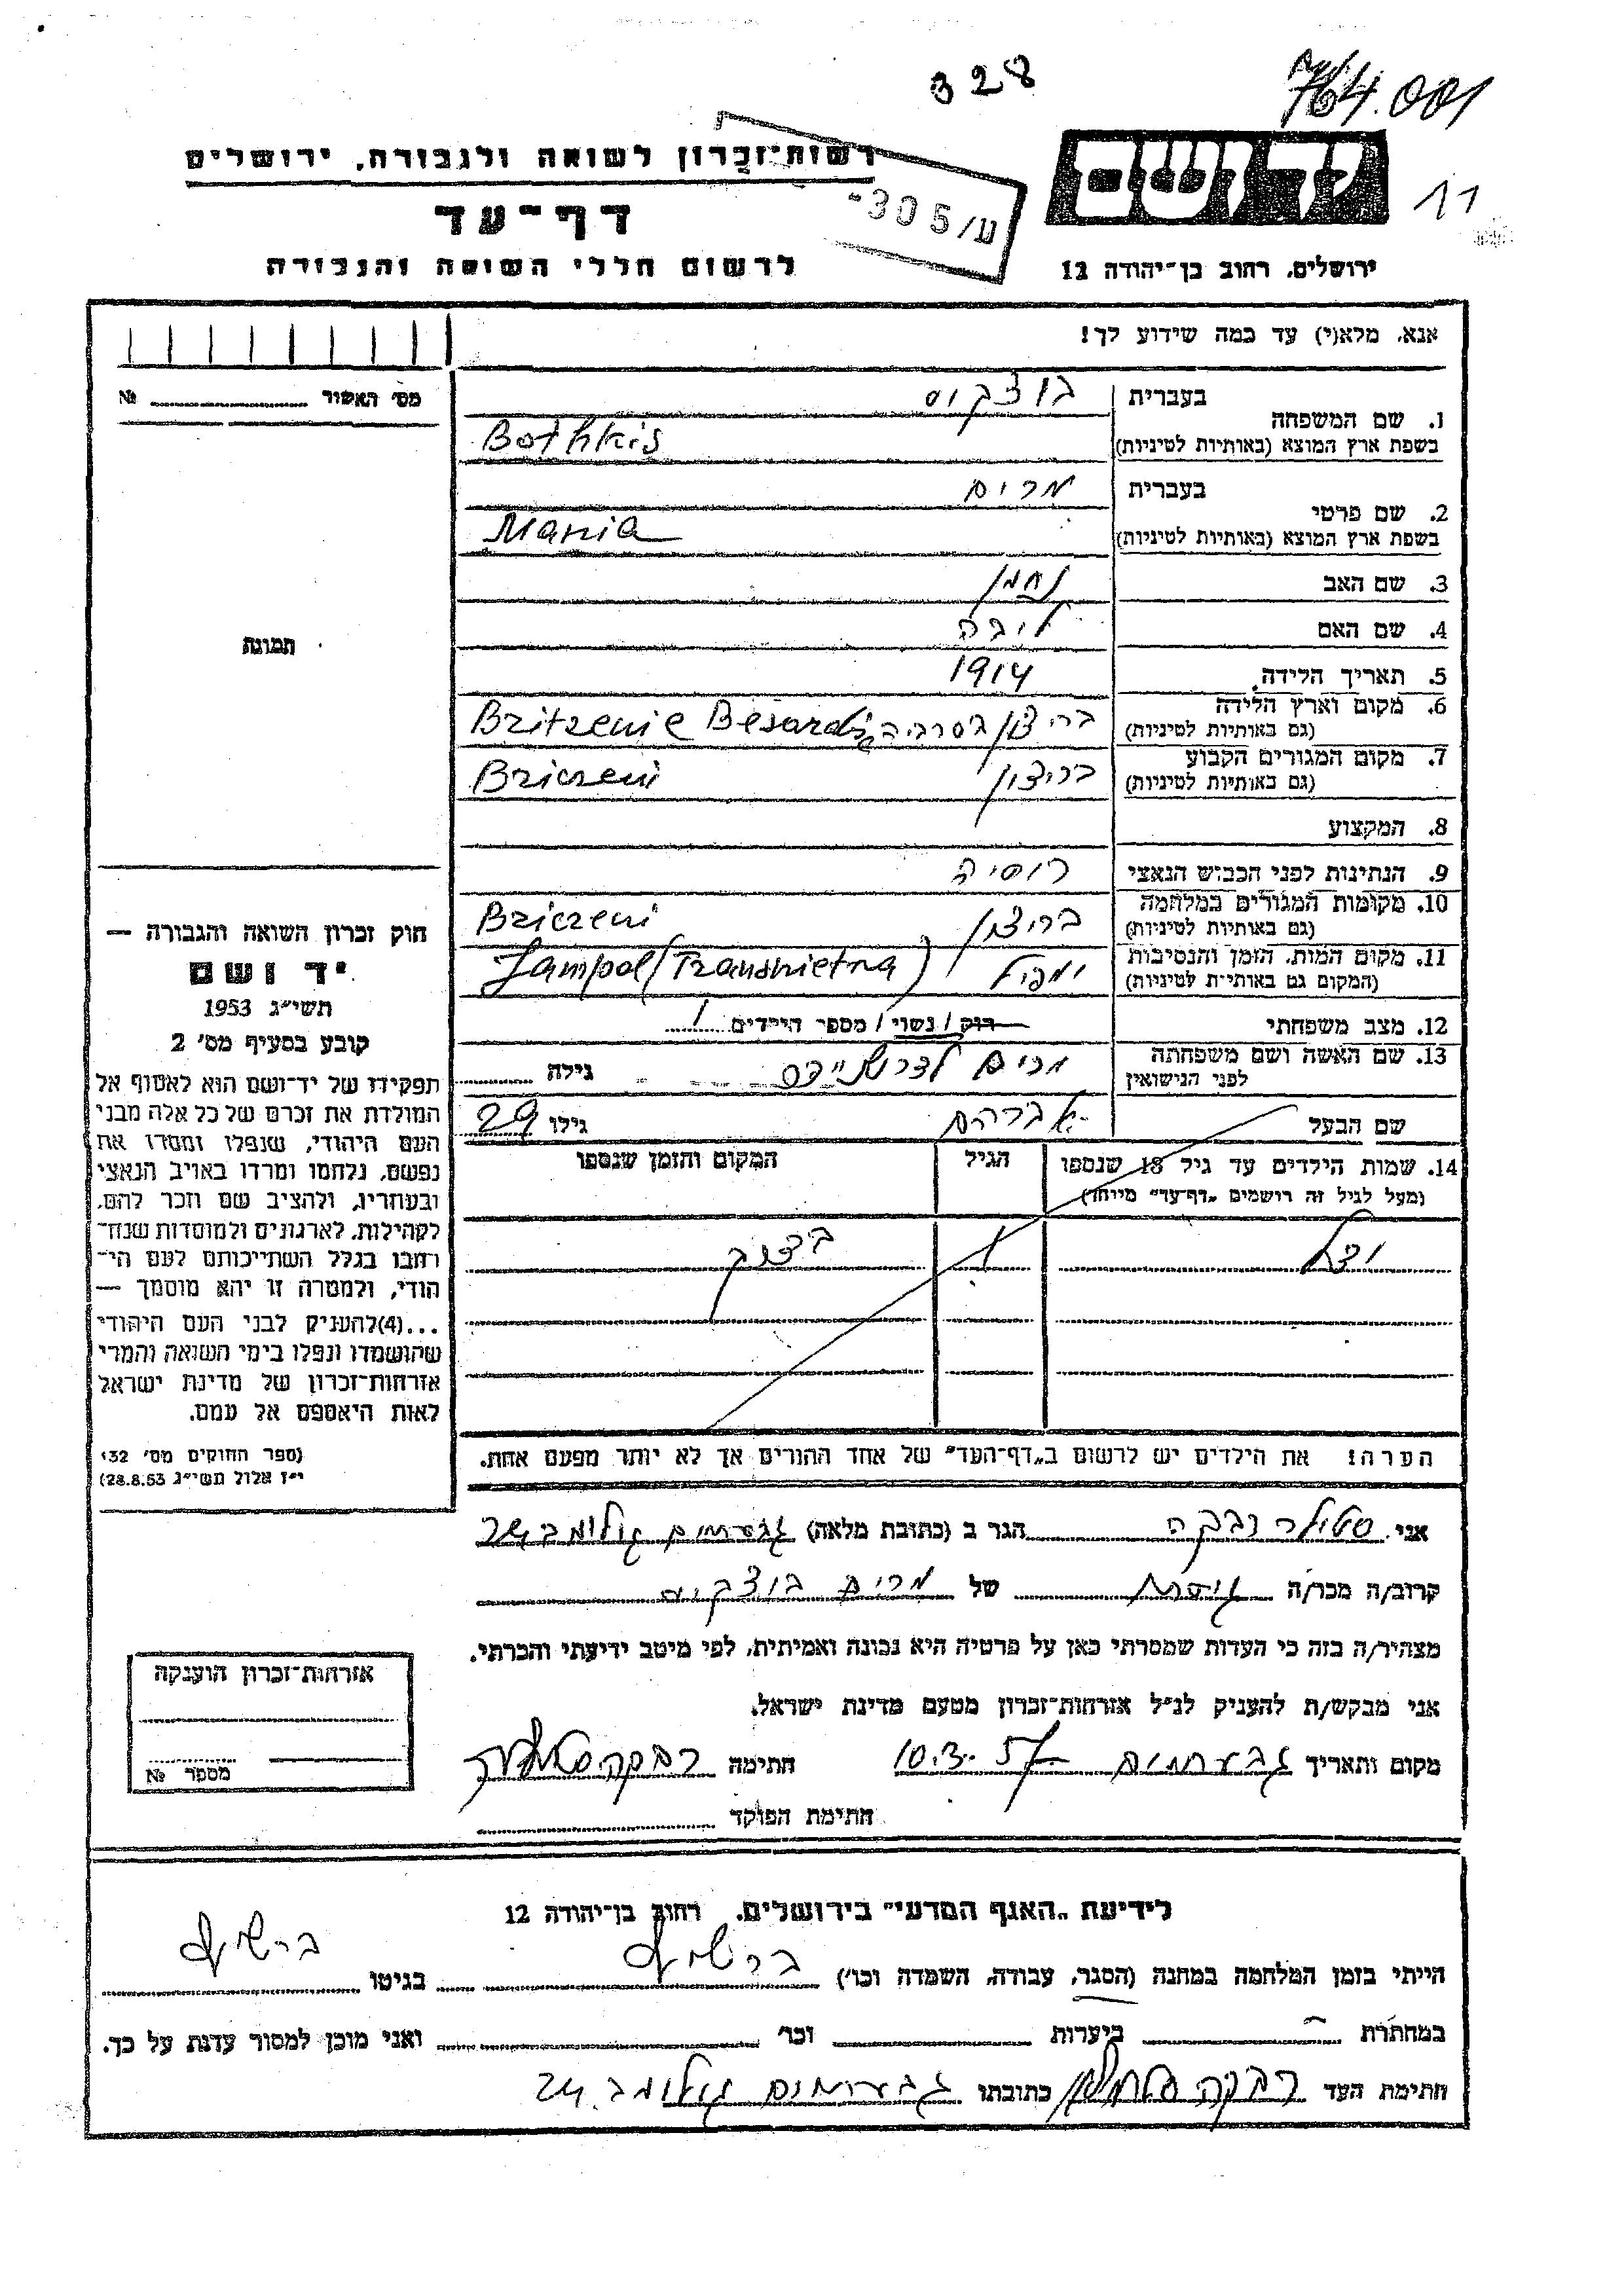 328
764.001
רשות־זכרון לשואה ולגבורה, ירושלים
יד ושם
11
דף־עד
305/ע
לרשום חללי השואה והגבורה
ירושלים, רחוב בן־יהודה 12
אנא, מלא(י) עד כמה שידוע לך!
מס׳ האשור № 
1. שם המשפחה
בעברית בוצקיס
בשפת ארץ המוצא (באותיות לטיניות) Bothkis
2. שם פרטי
בעברית מרים
בשפת ארץ המוצא (באותיות לטיניות) Mania
3. שם האב נחמן
4. שם האם ליבה
תמונה
5. תאריך הלידה 1914
6. מקום וארץ הלידה
(גם באותיות לטיניות) בריצון בסרביה Britzenie
7. מקום המגורים הקבוע
(גם באותיות לטיניות) בריצון Briczeni
8. המקצוע
9. הנתינות לפני הכבוש הנאצי רוסיה
10. מקומות המגורים במלחמה
(גם באותיות לטיניות) בריצון Briczeni
11. מקום המות, הזמן והנסיבות
(המקום גם באותיות לטיניות) ימפול Jampol (Transnietna)
12. מצב משפחתי רוק / נשוי / מספר הילדים 1
13. שם האשה ושם משפחתה
לפני הנישואין מרים גילה
שם הבעל אברהם גילו 29
14. שמות הילדים עד גיל 18 שנספו
(מעל לגיל זה רושמים „דף־עד״ מיוחד)
הגיל
המקום והזמן שנספו
1
הערה: את הילדים יש לרשום ב„דף־העד״ של אחד ההורים אך לא יותר מפעם אחת.
חוק זכרון השואה והגבורה —
יד ושם
תשי״ג 1953
קובע בסעיף מס׳ 2
תפקידו של יד־ושם הוא לאסוף אל
המולדת את זכרם של כל אלה מבני
העם היהודי, שנפלו ומסרו את
נפשם, נלחמו ומרדו באויב הנאצי
ובעוזריו, ולהציב שם וזכר להם,
לקהילות, לארגונים ולמוסדות שנח־
רבו בגלל השתייכותם לעם הי־
הודי, ולמטרה זו יהא מוסמך —
...(4)להעניק לבני העם היהודי
שהושמדו ונפלו בימי השואה והמרי
אזרחות־זכרון של מדינת ישראל
לאות היאספם אל עמם.
(ספר החוקים מס׳ 132
י״ז אלול תשי״ג 28.8.53)
אני סטולר רבקה הגר ב (כתובת מלאה) גבעתיים גולומב 24
קרוב/ה מכר/ה גיסה של מרים בוצקיס
מצהיר/ה בזה כי העדות שמסרתי כאן על פרטיה היא נכונה ואמיתית, לפי מיטב ידיעתי והכרתי.
אני מבקש/ת להעניק לנ״ל אזרחות־זכרון מטעם מדינת ישראל.
מקום ותאריך גבעתיים 10.3.57 חתימה רבקה סטולר
חתימת הפוקד
אזרחות־זכרון הוענקה
מספר №
לידיעת „האגף המדעי״ בירושלים, רחוב בן־יהודה 12
הייתי בזמן המלחמה במחנה (הסגר, עבודה, השמדה וכו׳) ברשד בגיטו ברשד
במחתרת ביערות וכו׳ ואני מוכן למסור עדות על כך.
חתימת העד רבקה סטולר כתובתו גבעתיים גולומב 24